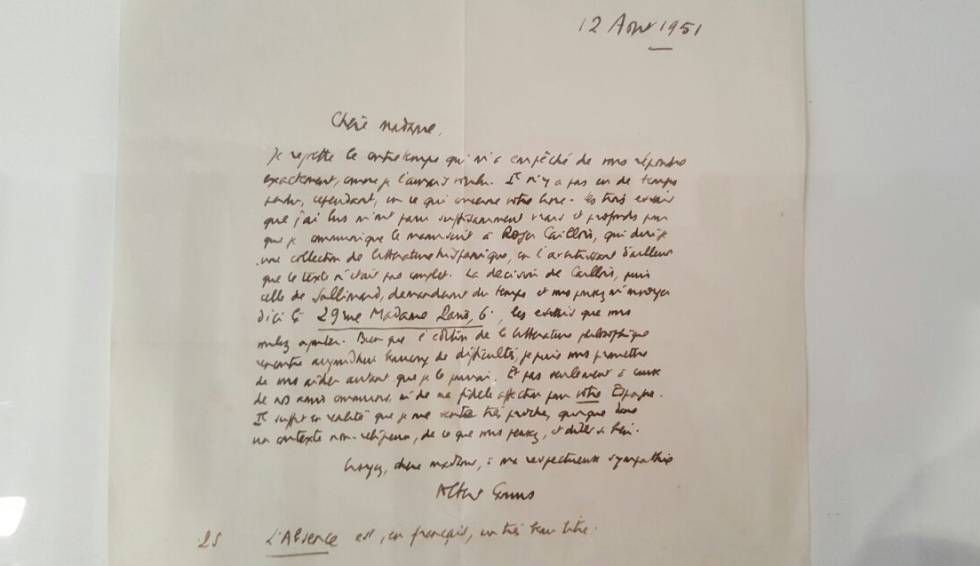 12 Août 1951
Chère madame,
Je regrette le contretemps qui m'a empêché de vous répondre
exactement, comme je l'aurais voulu. Il n'y a pas eu de temps
perdu, cependant, en ce qui concerne votre livre. Les trois essais
que j'ai lus m'ont paru suffisamment vrais et profonds pour
que je communique le manuscrit à Roger Caillois, qui dirige
une collection de littérature hispanique, en l'avertissant d'ailleurs
que le texte n'était pas complet. La décision de Caillois, puis
celle de Gallimard, demandent du temps et vous pouvez m'envoyer
d'ici là 29 rue Madame Paris, 6°, les essais que vous
voulez ajouter. Bien que l'édition de la littérature philosophique
rencontre aujourd'hui beaucoup de difficultés, je puis vous promettre
de vous aider autant que je le pourrai. Et pas seulement à cause
de nos amis communs, ni de ma fidèle affection pour votre Espagne.
Il suffit en réalité que je me sente très proche, quoique dans
un contexte non-religieux, de ce que vous pensez, et dites si bien.
Croyez, chère madame, à ma respectueuse sympathie
Albert Camus
L'Absence est, en français, un très beau titre.